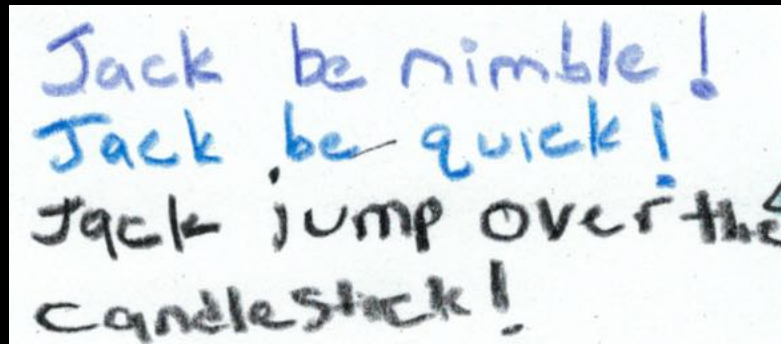 Jack be nimble!
Jack be quick!
Jack jump over the
candlestick!